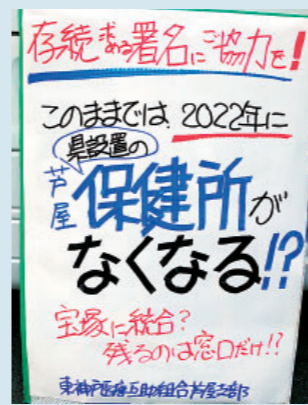 存続求める署名にご協力を!
このままでは、2022年に
県設置の
芦屋保健所が
なくなる!?
宝塚に統合?
残るのは窓口だけ!?
東神戸医療互助組合芦屋支部